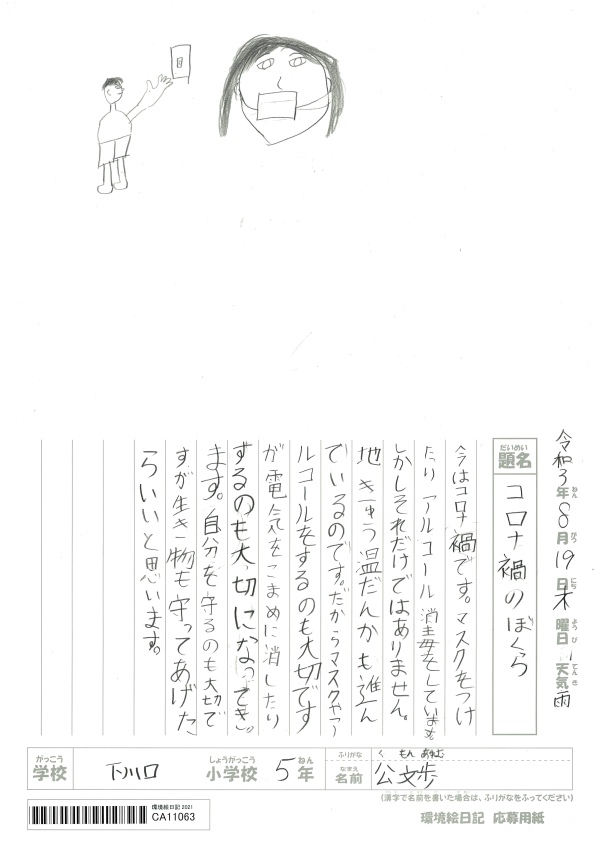 令和3年ねん8月がつ19日にち木曜日ようび天気てんき雨
だいめい
題名
コロナ禍のぼくら
今はコロナ禍です。マスクをつけ
たり アルコール消毒をしています。
しかしそれだけではありません。
地きゅう温だんかも進ん
でいるのです。だからマスクやア
ルコールをするのも大切です
が電気をこまめに消したり
するのも大切になってき
ます。自分を守るのも大切で
すが生き物も守ってあげた
らいいと思います。
がっこう
学校
下川口
しょうがっこう
小学校
5年ねん
ふりがな
く もん あゆむ
なまえ
名前
公文歩
(漢字で名前を書いた場合は、ふりがなをふってください)
環境絵日記 2021
CA11063
環境絵日記 応募用紙